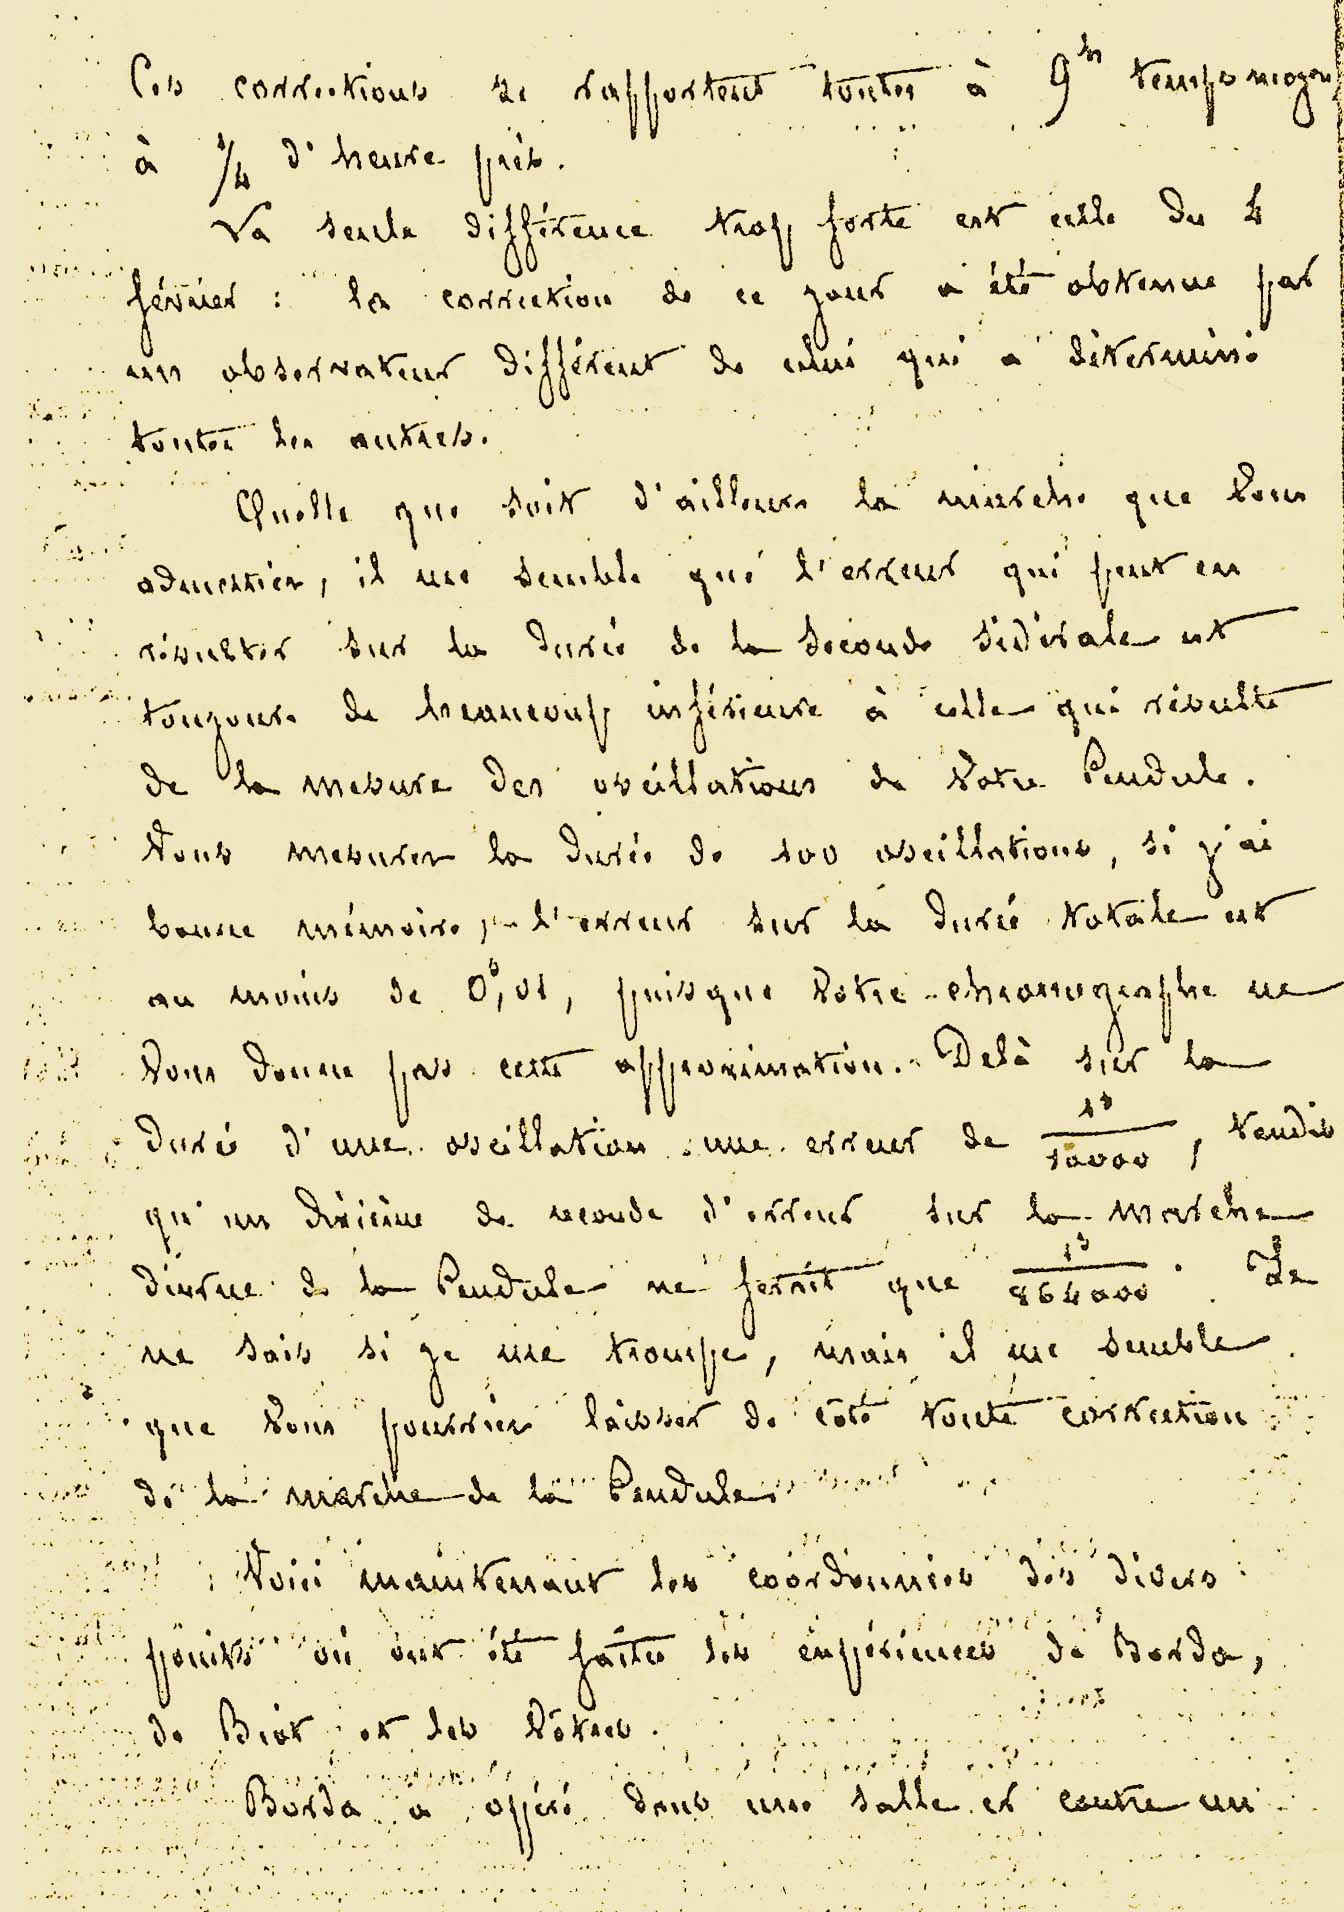 Ces corrections se rapportent toutes à 9h temps moyen,
à 1/4 d'heure près.
La seule différence trop forte est celle du 4
février : la correction de ce jour a été obtenue par
un observateur différent de celui qui a déterminé
toutes les autres.
Quelle que soit d'ailleurs la marche que Vous
admettiez, il me semble que l'erreur qui peut en
résulter sur la durée de la seconde sidérale est
toujours de beaucoup inférieure à celle qui résulte
de la mesure des oscillations de Votre Pendule.
Vous mesurez la durée de 100 oscillations, si j'ai
bonne mémoire ; l'erreur sur la durée totale est
au moins de 0s,01, puisque Votre chronographe ne
Vous donne pas cette approximation. Delà sur la
durée d'une oscillation une erreur de 1s/10000, tandis
qu'un dixième de seconde d'erreur sur la marche
diurne de la Pendule ne ferait que 1s/864000. Je
ne sais si je me trompe, mais il me semble
que Vous pourriez laisser de côté toute correction
de la marche de la Pendule.
Voici maintenant les coordonnées des divers
points où ont été faites les expériences de Borda,
de Biot et les Vôtres.
Borda a opéré dans une salle et contre un